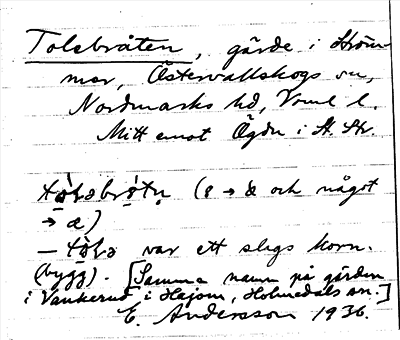 Tolebråten, gärde i Ström
mer, Östervallskogs sn,
Nordmarks hd, Vrml l.
Mitt emot Ögdn i St. Str.
(e → æ och något
→ a)
var ett slags korn.
(bygg). [Samma namn på gärden
i Vankerud i Hajom, Holmedals sn.]
E. Andersson 1936.